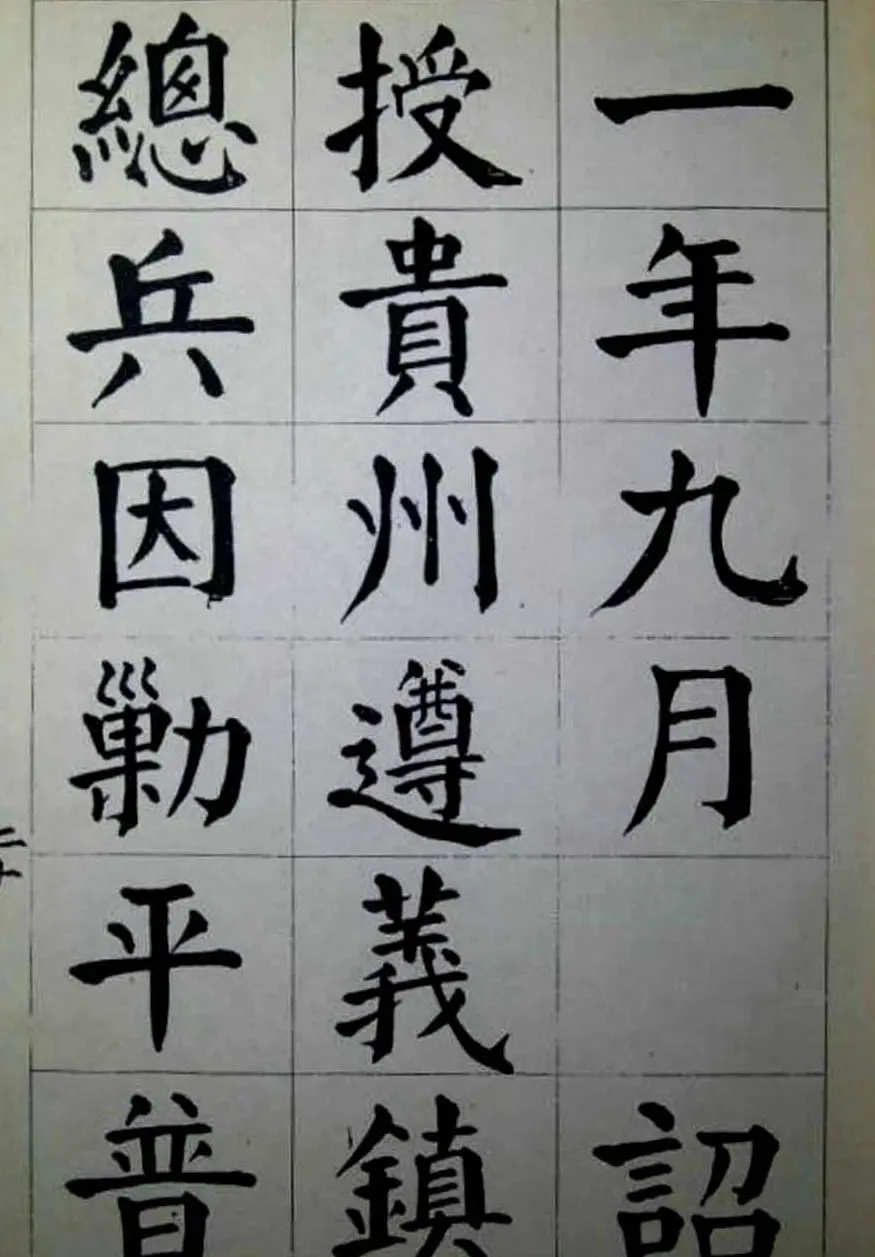 一年九月　詔
授貴州遵義鎮
總兵因勦平普
二十